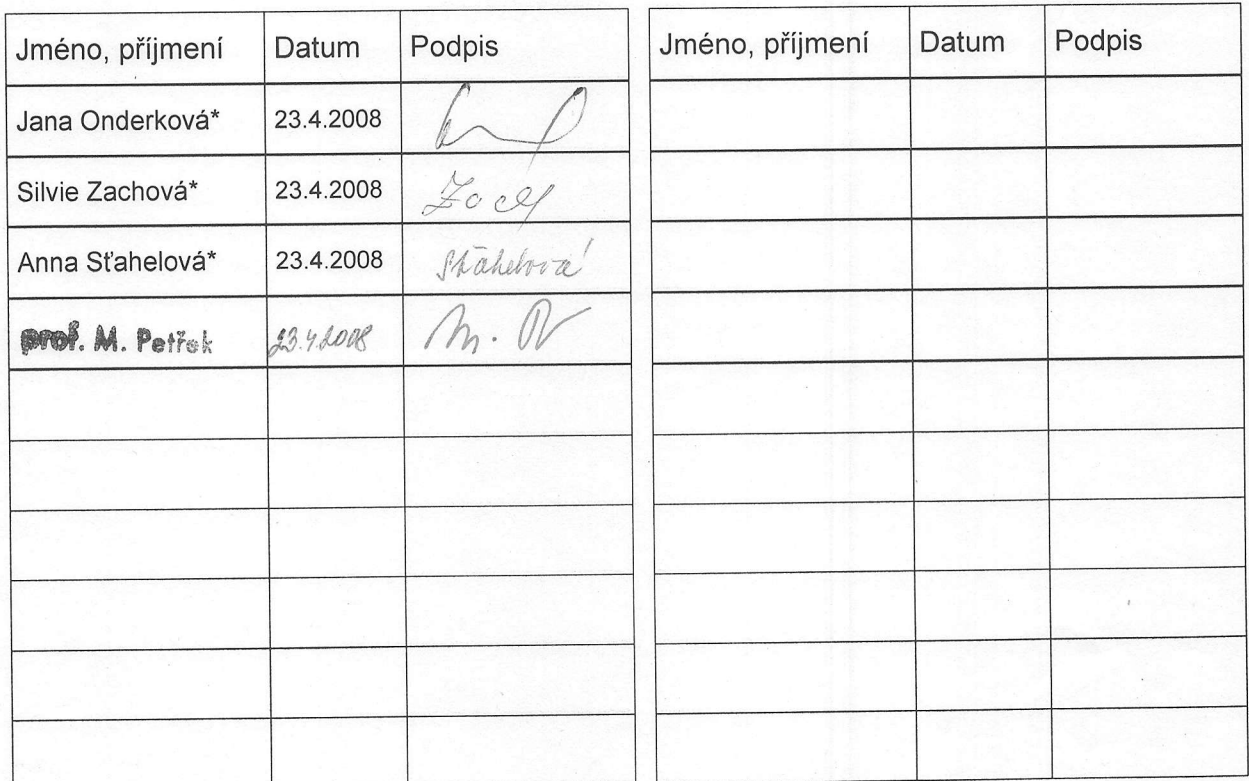 Jméno, příjmení Datum Podpis
Jana Onderková* 23.4.2008
Silvie Zachová* 23.4.2008 Zach
Anna Sťahelová* 23.4.2008 Sťahelová
prof. M. Petřek 23.4.2008 M.
Jméno, příjmení Datum Podpis